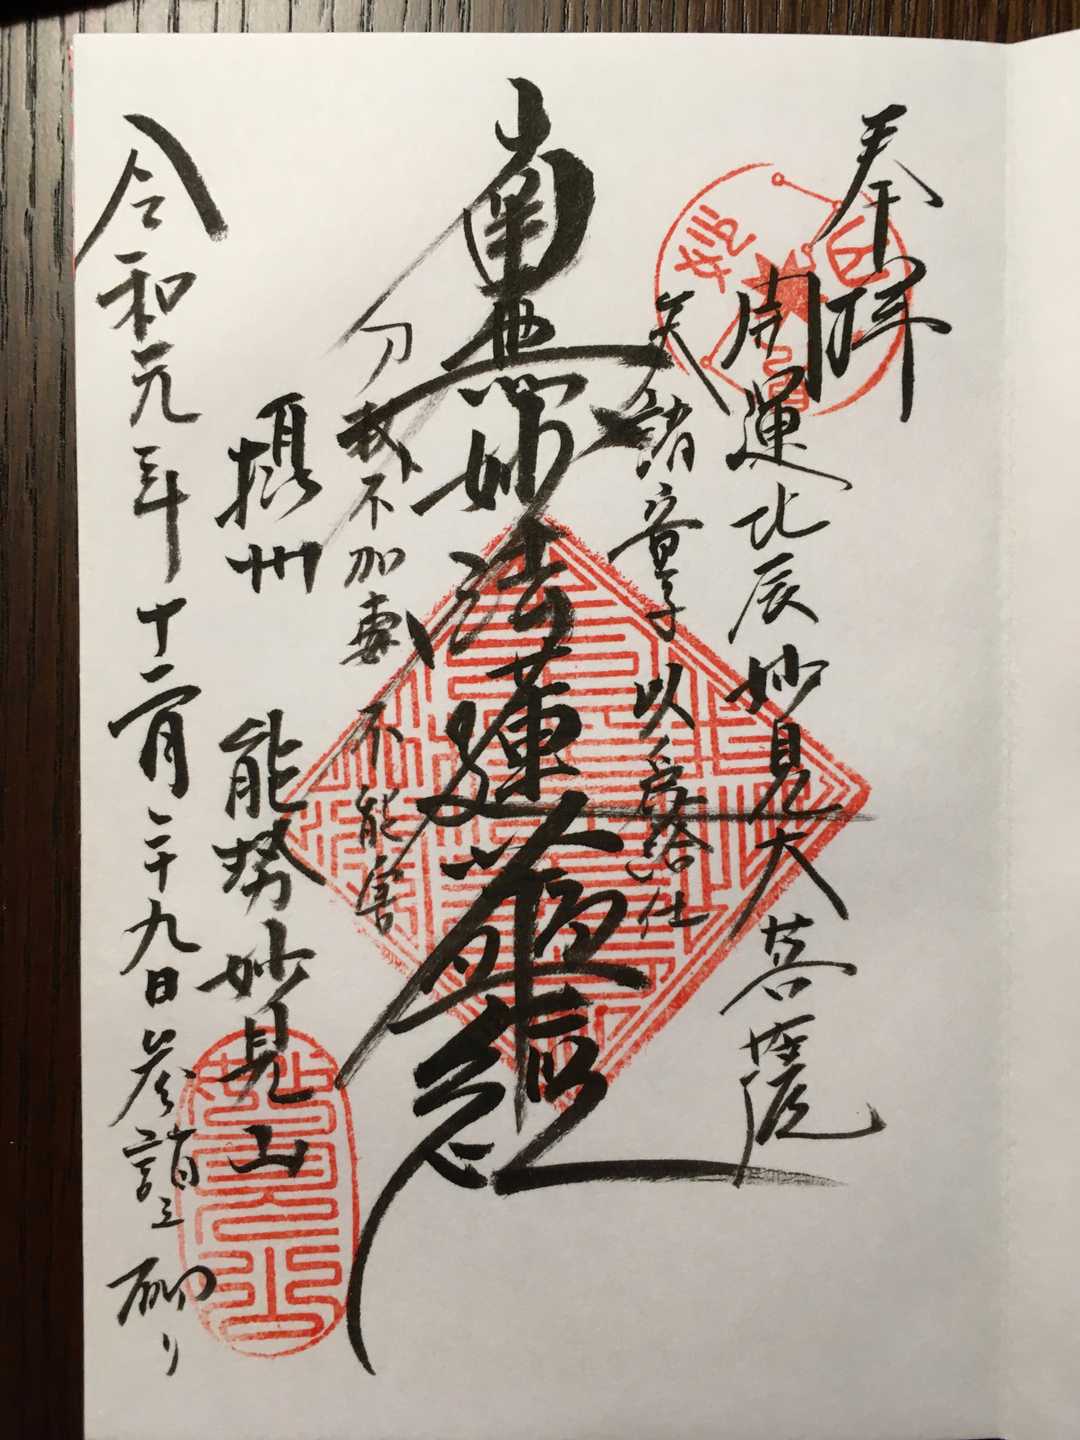 奉拝
開運北辰妙見大菩薩
天諸童子 以為給仕
南無妙法蓮華經
刀杖不加毒 不能害
摂州 能勢妙見山
令和元年十二月二十九日参詣之砌り
妙見山